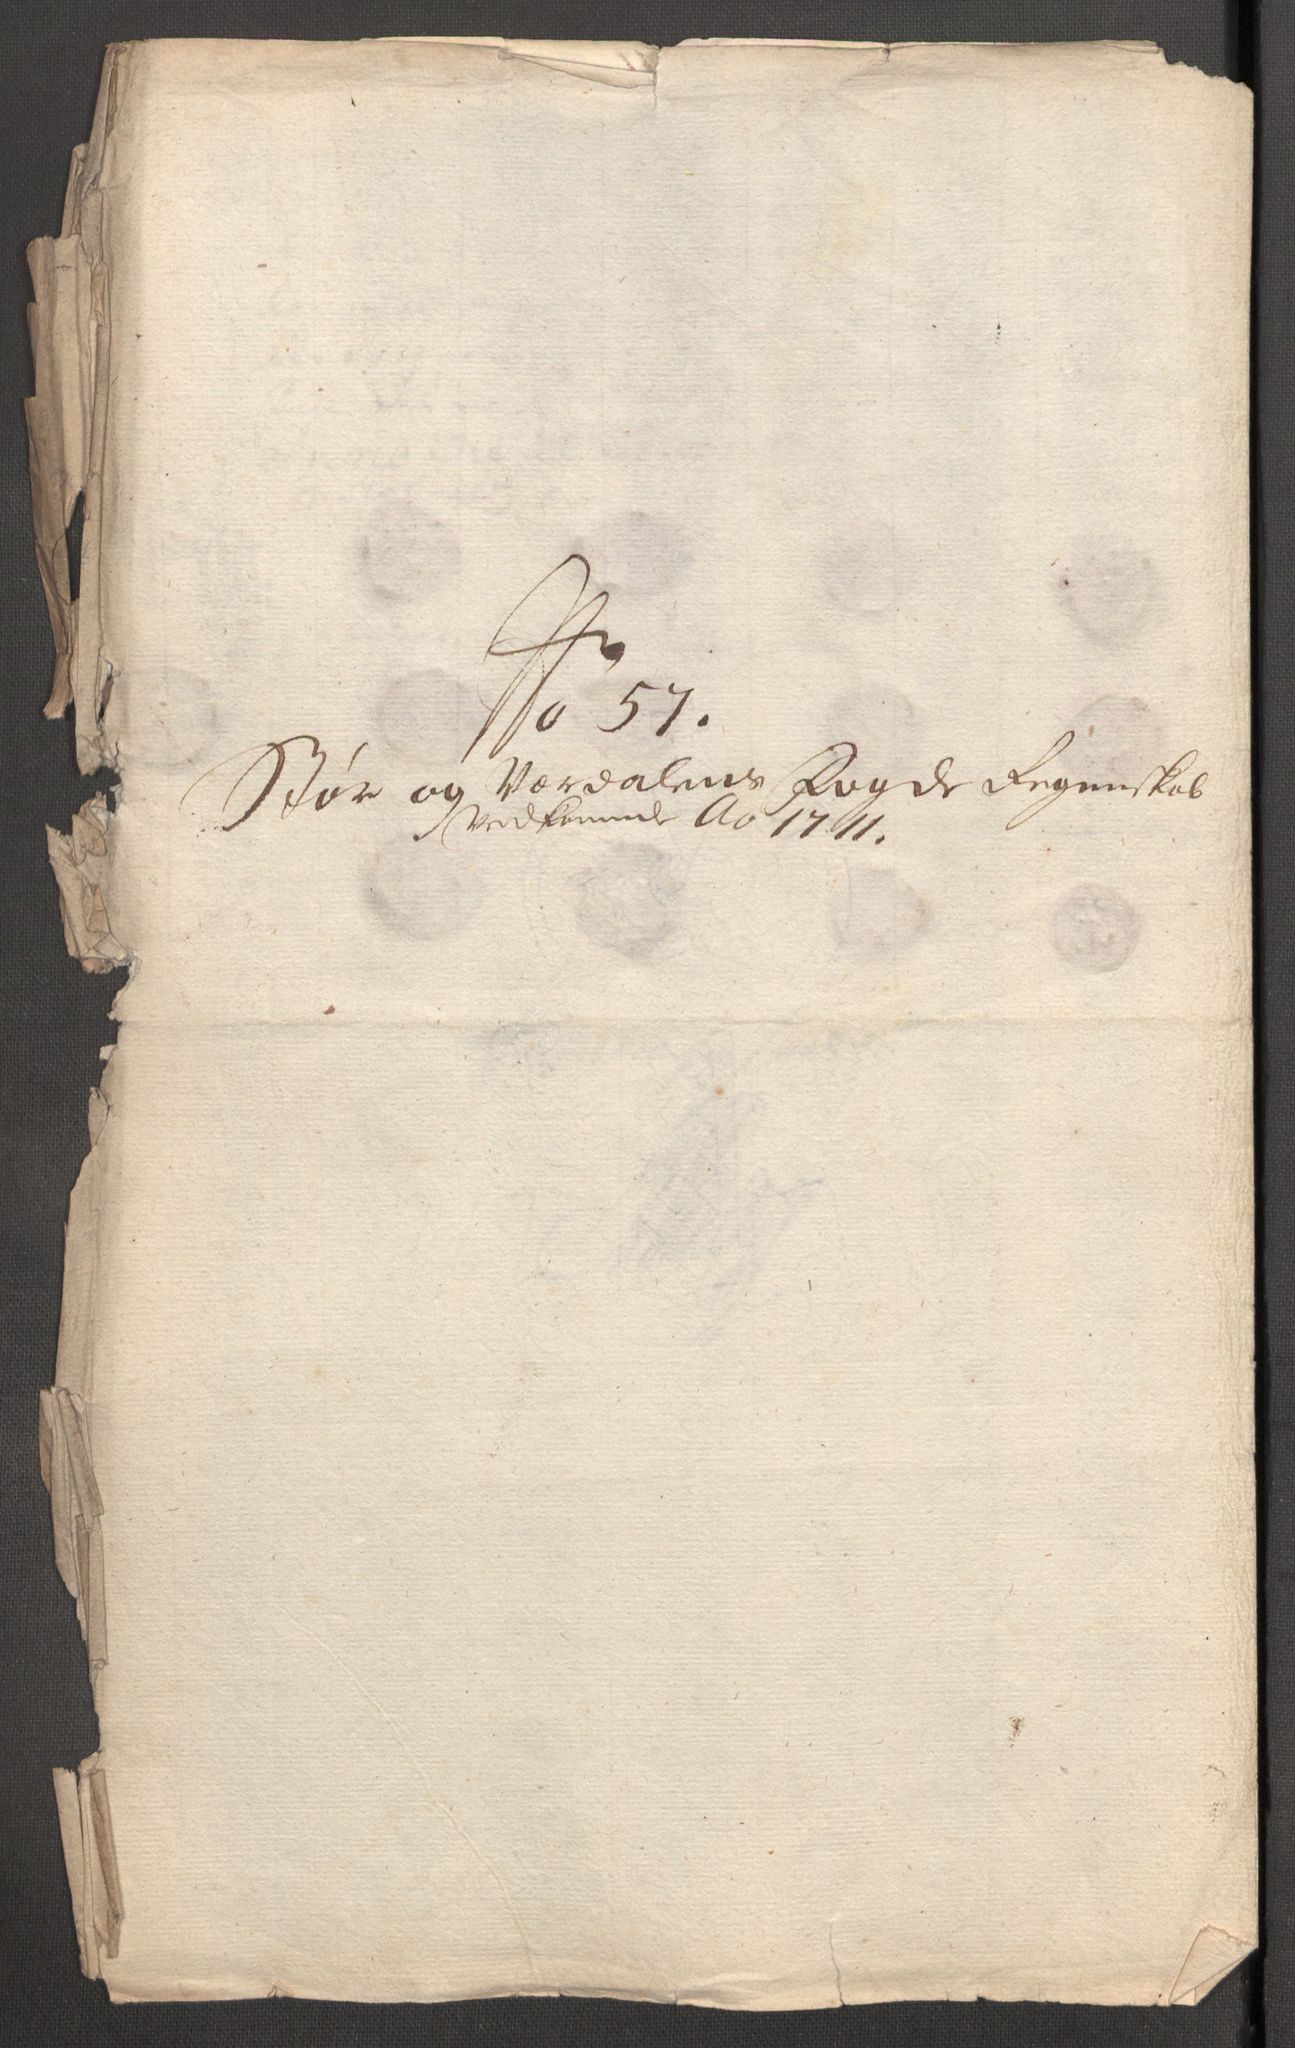 No 57.
Stør og Værdalens Fogde Regenskab
Vedkommende Ao 1711.